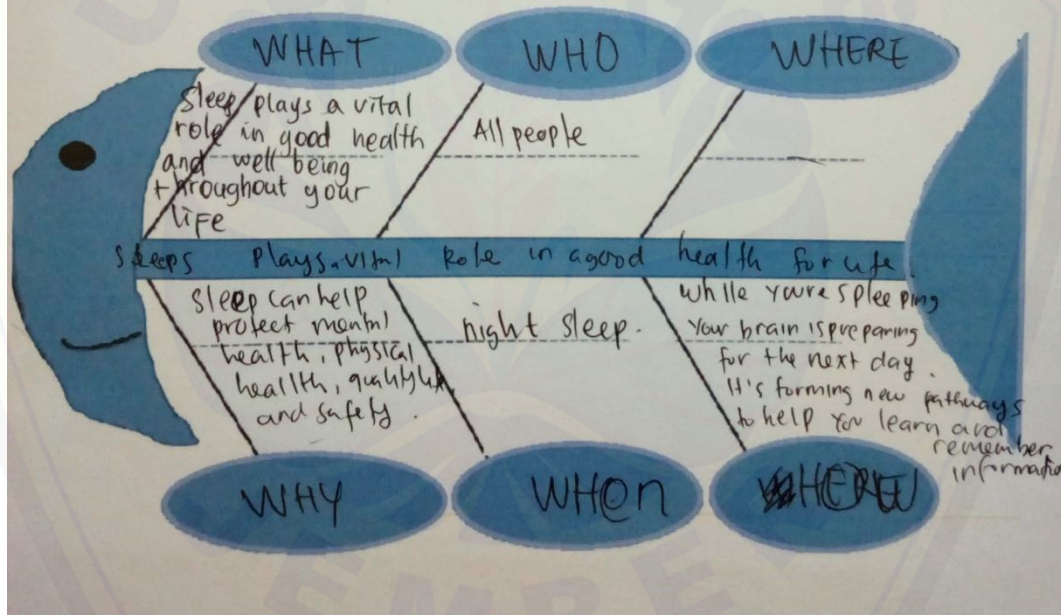 WHAT
WHO
WHERE
Sleep plays a vital
role in good health
and well being
throughout your
life
All people
sleeps plays a vital role in a good health for life.
sleep can help
protect mental
health, physical
health, quality
and safety.
night sleep.
while youre spleeping
your brain is preparing
for the next day.
It's forming new pathways
to help you learn and
remember
information
WHY
WHen